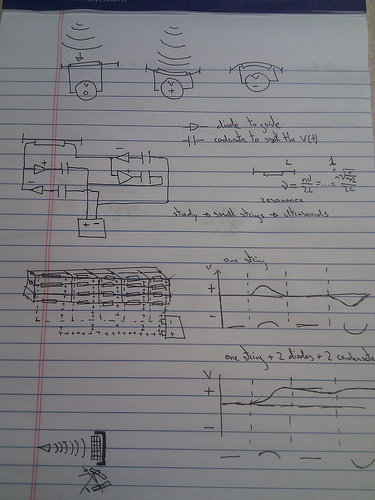 V
0
V
+
V
-
diode to guide
condensator to split the V(t)
+
-
-
+
L
1
ν = nv/2L = ... =
resonance
study → small strings → ultrasounds
+ -
one string
V
+
-
+
-
one string + 2 diodes + 2 condensate
V
+
-